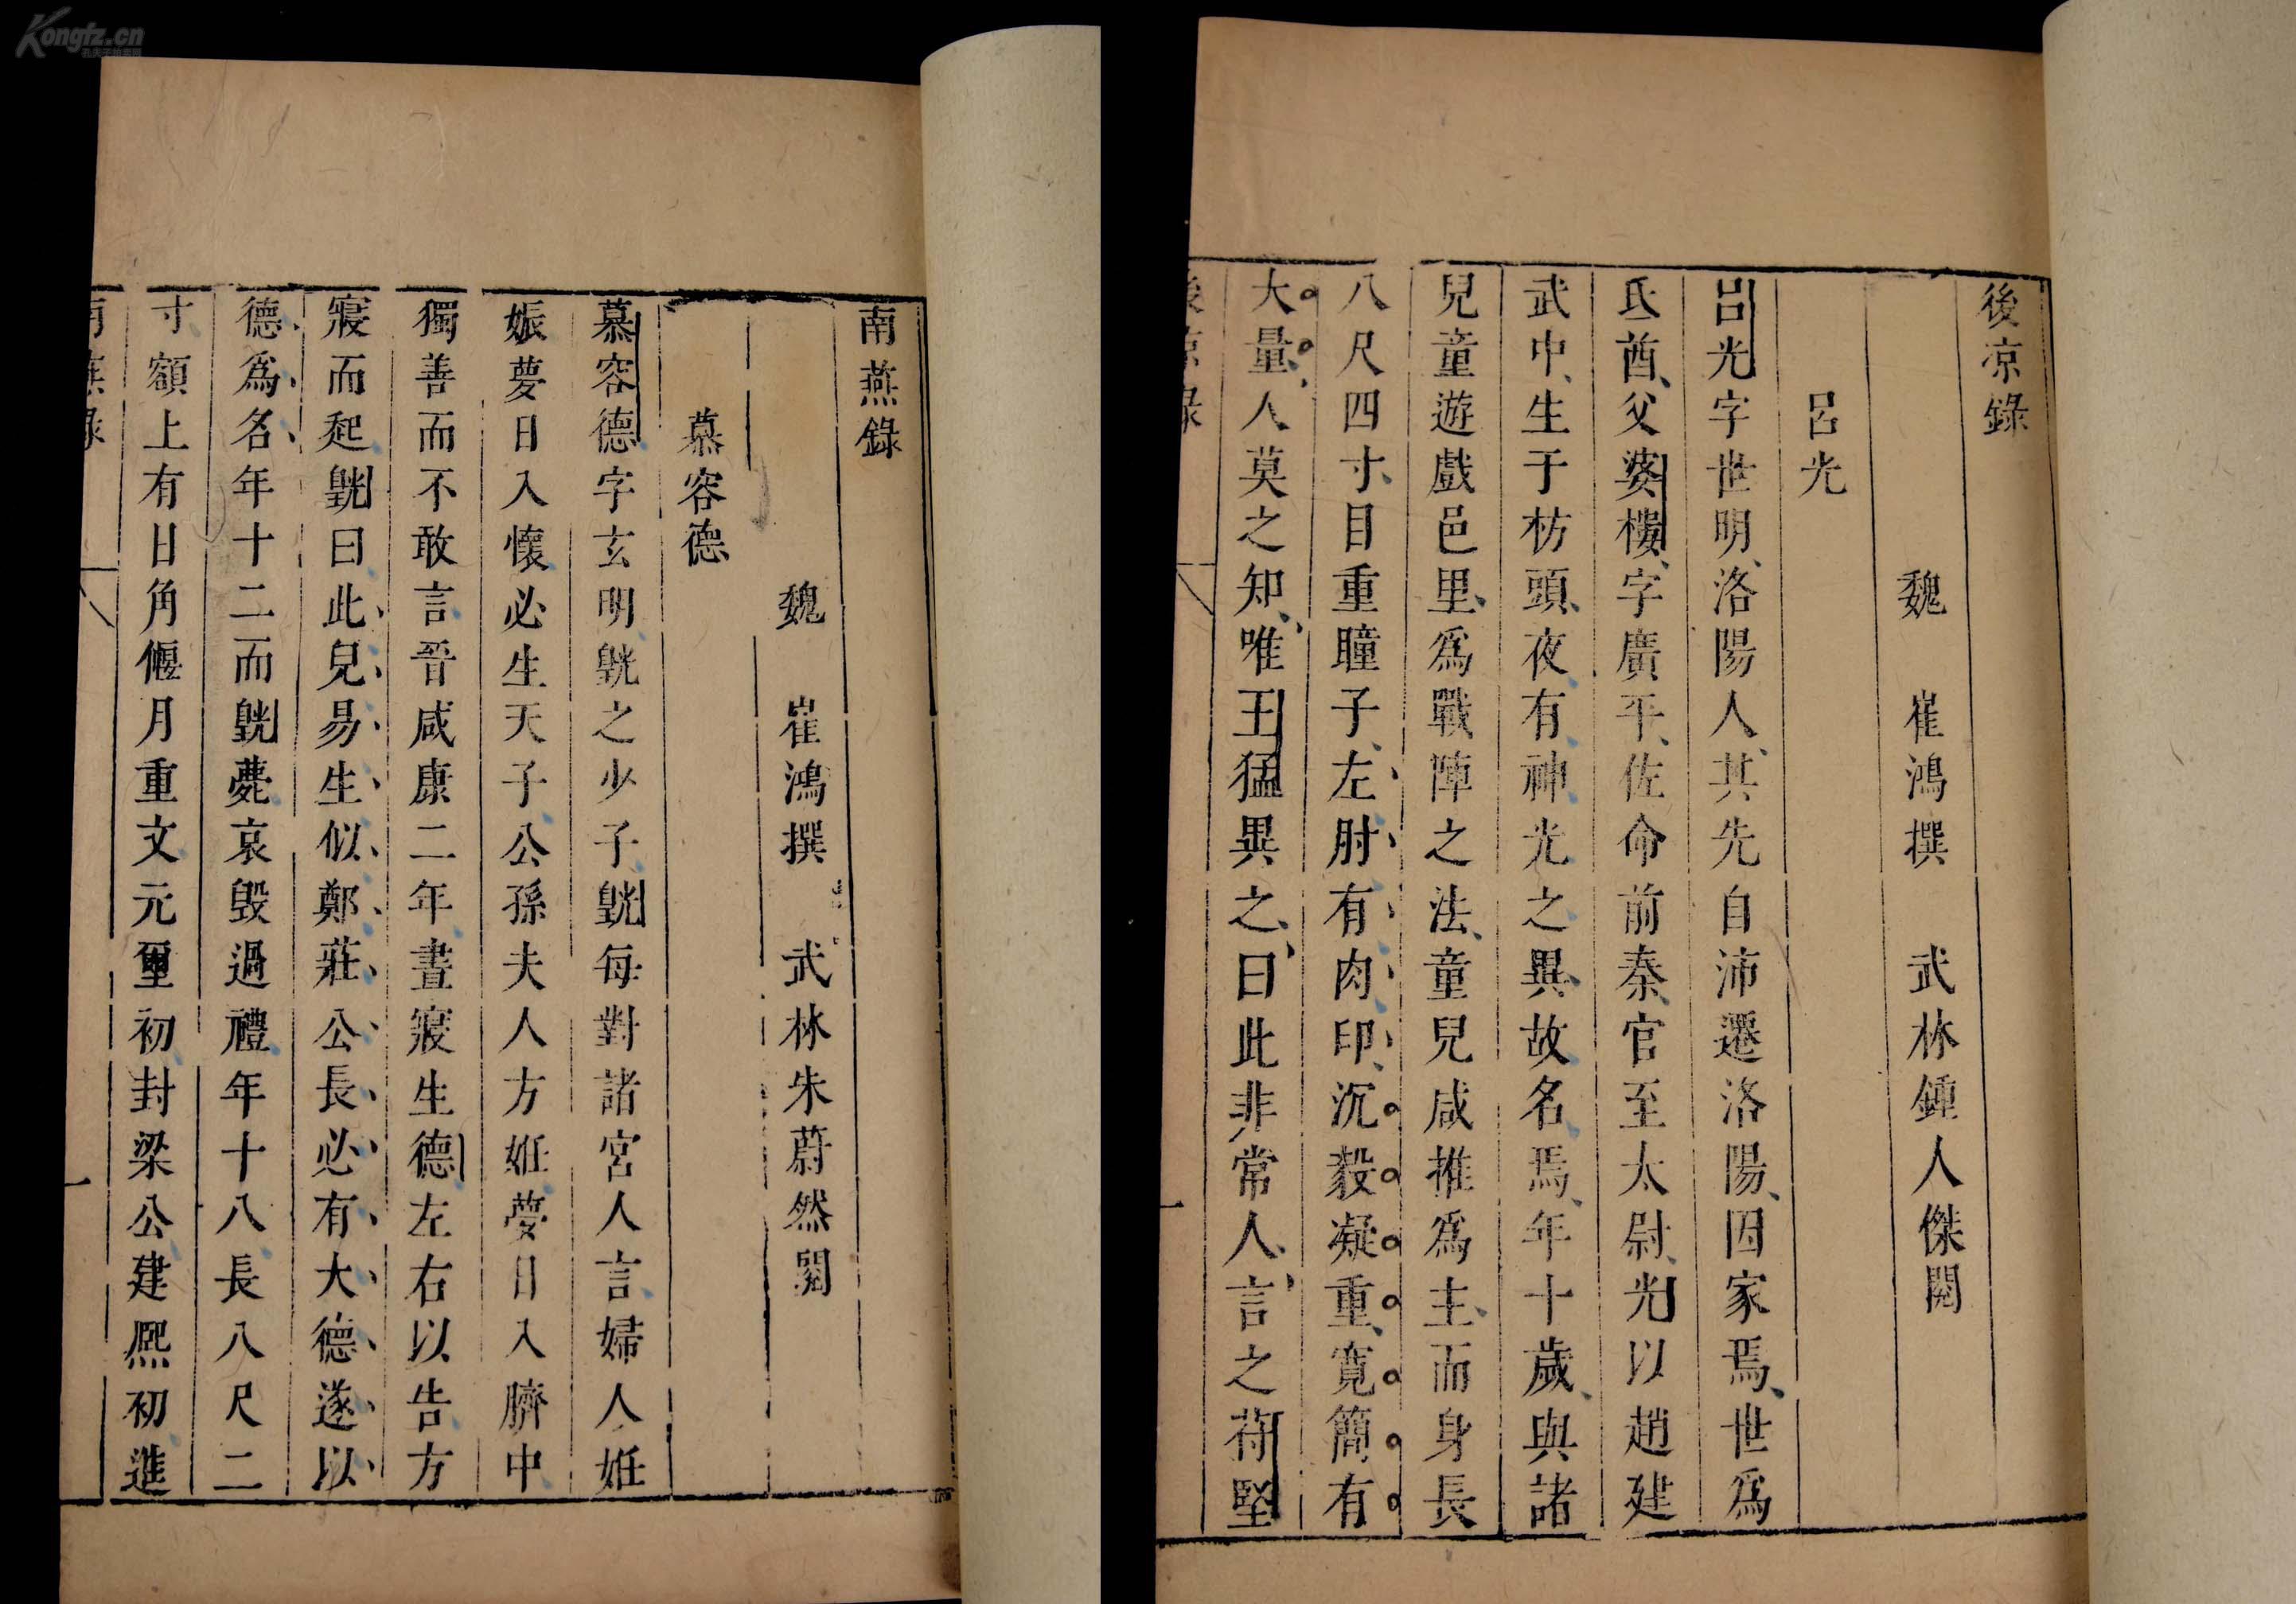 後凉錄
魏 崔鴻撰 武林鍾人傑閱
呂光
呂光字世明洛陽人其先自沛遷洛陽因家焉世爲
氐酋父婆樓字廣平佐命前秦官至太尉光以趙建
武中生于枋頭夜有神光之異故名焉年十歲與諸
兒童遊戲邑里爲戰陣之法童兒咸推爲主而身長
八尺四寸目重瞳子左肘有肉印沉毅凝重寬簡有
大量人莫之知唯王猛異之曰此非常人言之苻堅
後凉錄
一
南燕錄
魏 崔鴻撰 武林朱蔚然閱
慕容德
慕容德字玄明皝之少子皝每對諸宮人言婦人妊
娠夢日入懷必生天子公孫夫人方妊夢日入臍中
獨善而不敢言晉咸康二年晝寢生德左右以告方
寢而起皝曰此兒易生似鄭莊公長必有大德遂以
德爲名年十二而皝薨哀毀過禮年十八長八尺二
寸額上有日角偃月重文元璽初封梁公建熙初進
南燕錄
一
Kongfz.cn